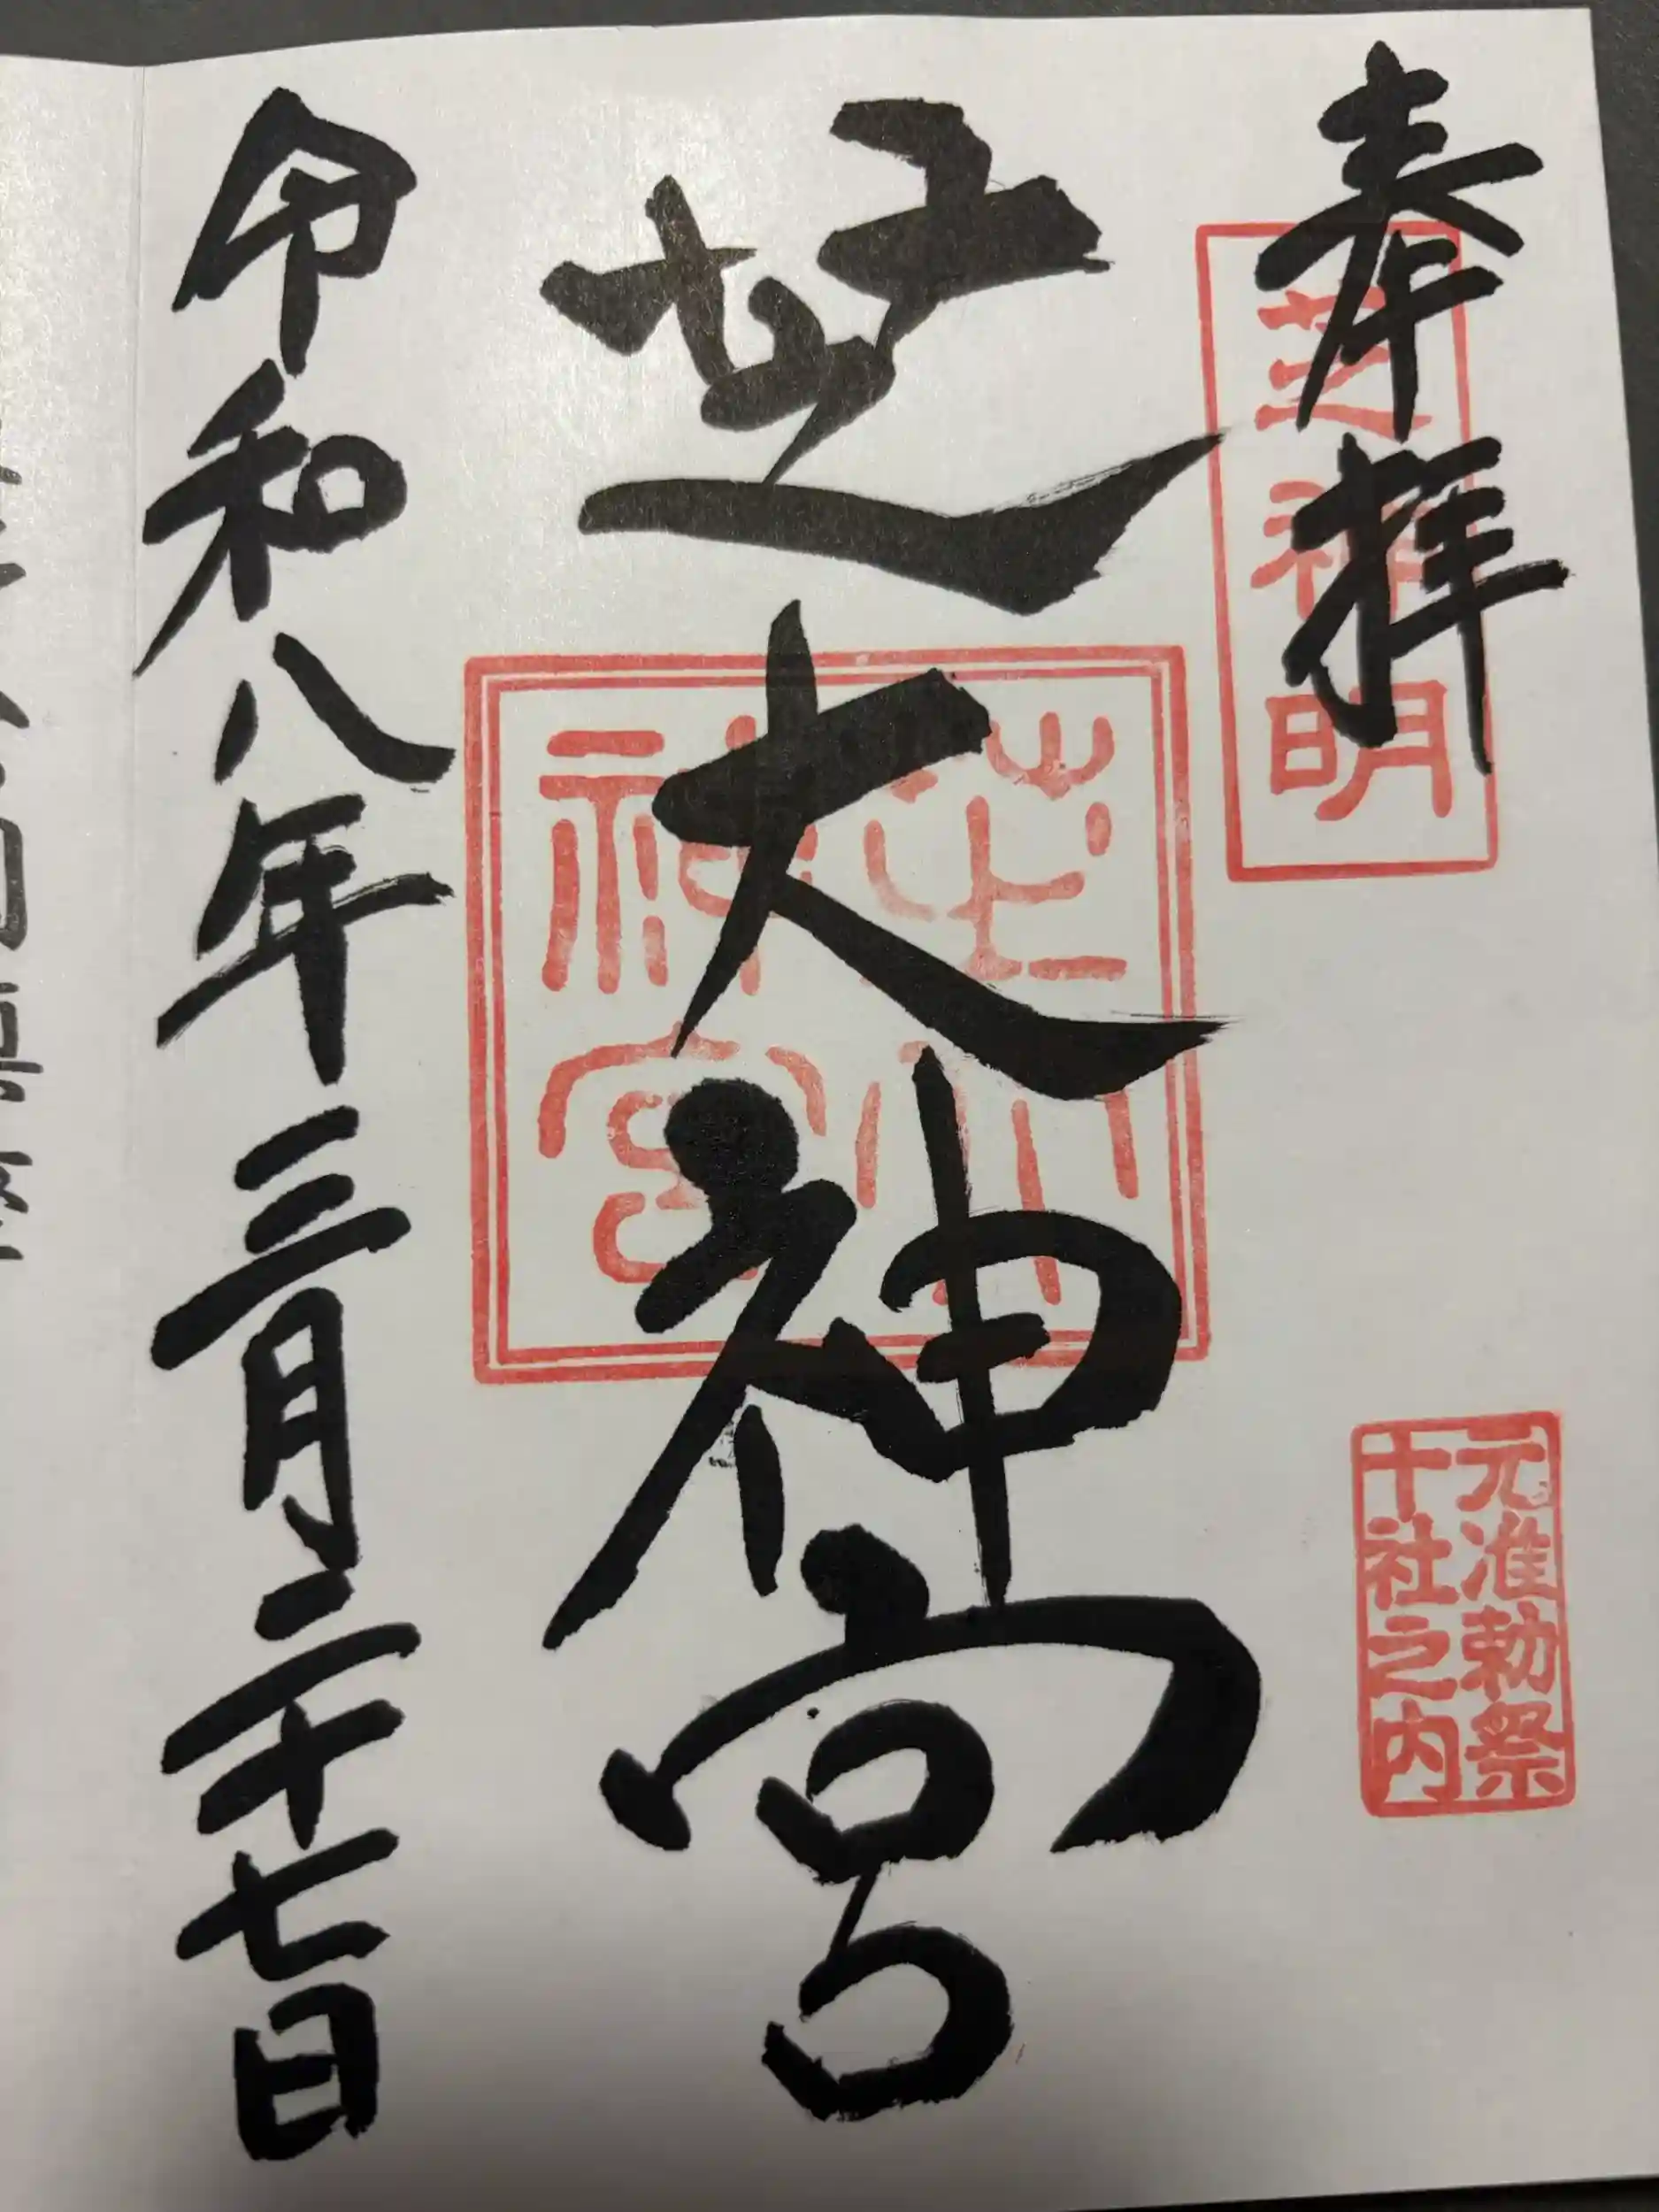 奉拝
芝神明
元准勅祭
十社之内
芝大神宮
芝大
神宮
令和八年三月二十七日